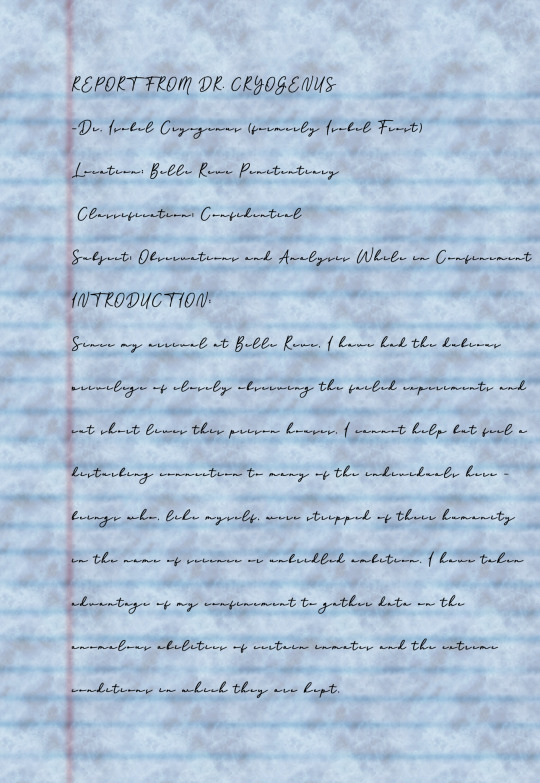 REPORT FROM DR. CRYOGENUS
-Dr. Isobel Cryogenus (formerly Isobel Frost)
Location: Belle Reve Penitentiary
Classification: Confidential
Subject: Observations and Analysis While in Confinement
INTRODUCTION:
Since my arrival at Belle Reve, I have had the dubious
privilege of closely observing the failed experiments and
cut short lives this prison houses. I cannot help but feel a
disturbing connection to many of the individuals here -
beings who, like myself, were stripped of their humanity
in the name of science or unbridled ambition. I have taken
advantage of my confinement to gather data on the
anomalous abilities of certain inmates and the extreme
conditions in which they are kept.